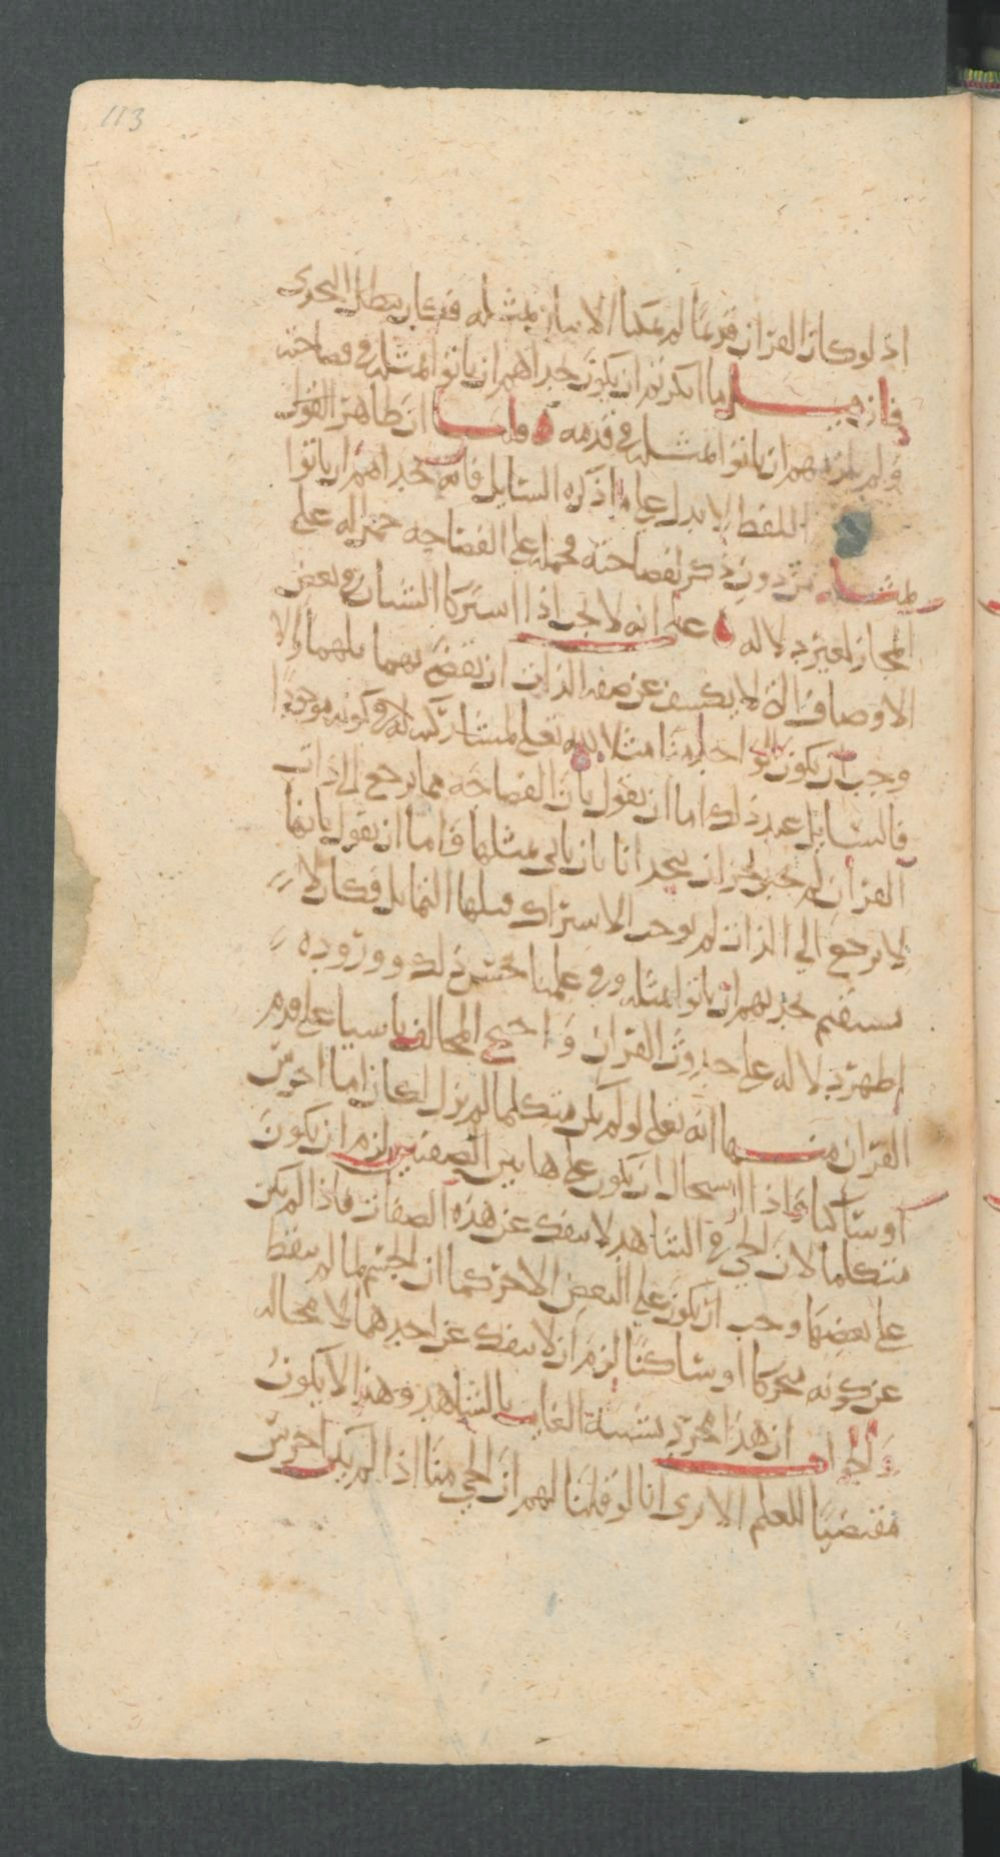 113
اذ لو كان القران قديما لم يمكنا الاتيان بمثله فكان يبطل التحدى
فان قيل ما انكرتم ان يكون تحداهم ان ياتوا بمثله في فصاحته
ولم يلزمهم ان ياتوا بمثله في قدمه قلنا ان ظاهر القول
اللفظ لا يدل على ما ذكره السايل فانه تحداهم ان ياتوا
بمثله من دون ذكر لفصاحته فحمله على الفصاحه حمل له على
المجاز لغير دلاله على انه لا يجب اذا اشترك الشيان في بعض
الاوصاف التي لا يكشف عن صفه الذات ان يقضى بهما بلهما والا
وجب ان يكون الواحد منا مثلا لله تعلى لمشاركته له في كونه موجودا
فالسايل عند ذلك اما ان يقول بان الفصاحه مما يرجع الى ذات
القران لم يجز ان يتحدانا بان ناتي بمثلها واما ان يقول بانها
لا يرجع الى الذات لم يوجب الاشتراك فيها التماثل فكان لا
يستقيم تحديهم ان ياتوا بمثله وفي علمنا بحسن ذلك ووروده
اظهر دلاله على حدوث القران واحتج المخالف باشيا على قدم
القران منها انه تعلى لو لم يكن متكلما لم يزل لكان اما اخرس
او ساكتا فاذا استحال ان يكون على هاتين الصفتين لزم ان يكون
متكلما لان الحي في الشاهد لا ينفك عن هذه الصفات فاذا لم يكن
على بعضها وجب ان يكون على البعض الاخر كما ان الجسم لما لم ينفك
عن كونه متحركا او ساكنا لزم ان لا ينفك عن احدهما لا محاله
والجواب ان هذا مجرد تشبيه الغايب بالشاهد وهذا لا يكون
مقتضيا للعلم الا ترى انا لو قلنا لهم ان الحي منا اذا لم يكن اخرس